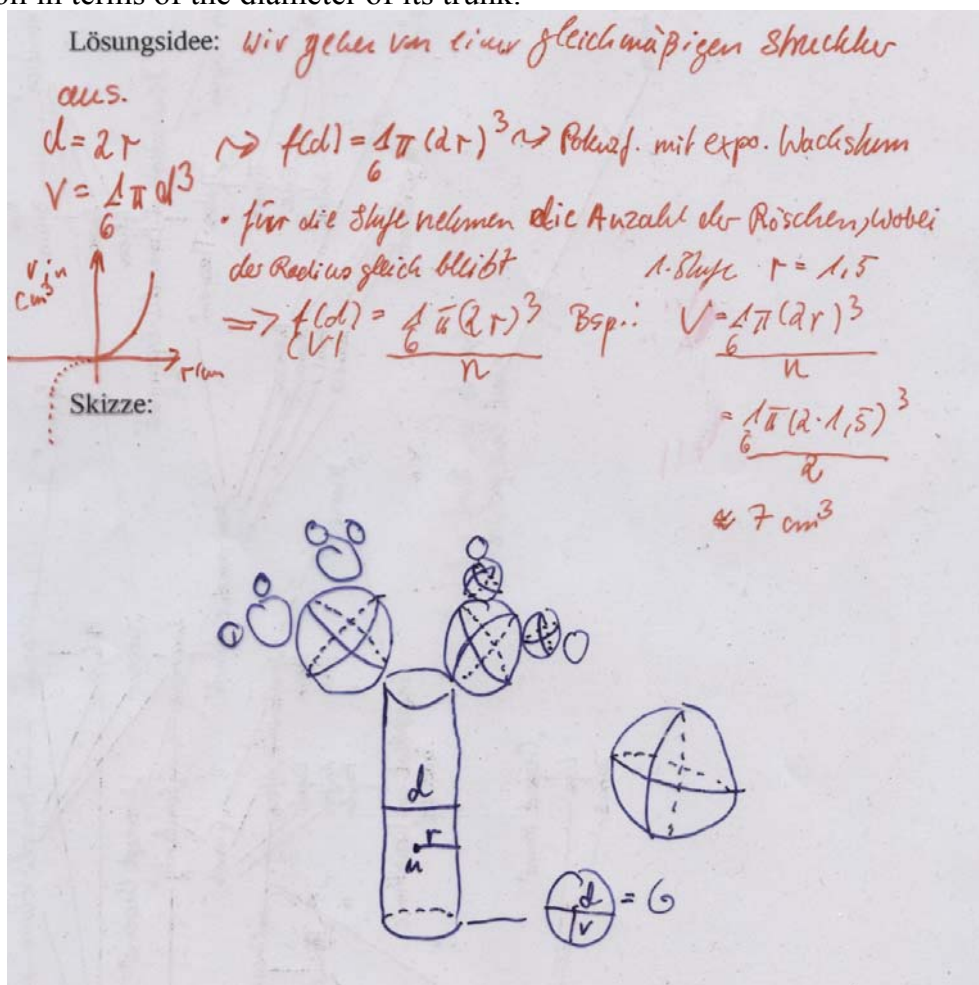 on in terms of the diameter of its trunk.
Lösungsidee: Wir gehen von einer gleichmäßigen Struktur
aus.
d = 2r ⇝ f(d) = 1/6 π (2r)³ ⇝ Potenzf. mit expo. Wachstum
V = 1/6 π d³
• für die Stufe nehmen die Anzahl der Röschen, wobei
der Radius gleich bleibt
1. Stufe r = 1,5
V in cm³
r/cm
=> f(d) (V) = 1/6 π (2r)³ / n Bsp.: V = 1/6 π (2r)³ / n
= 1/6 π (2·1,5)³ / 2
≈ 7 cm³
Skizze:
d
r
M
d = G
r